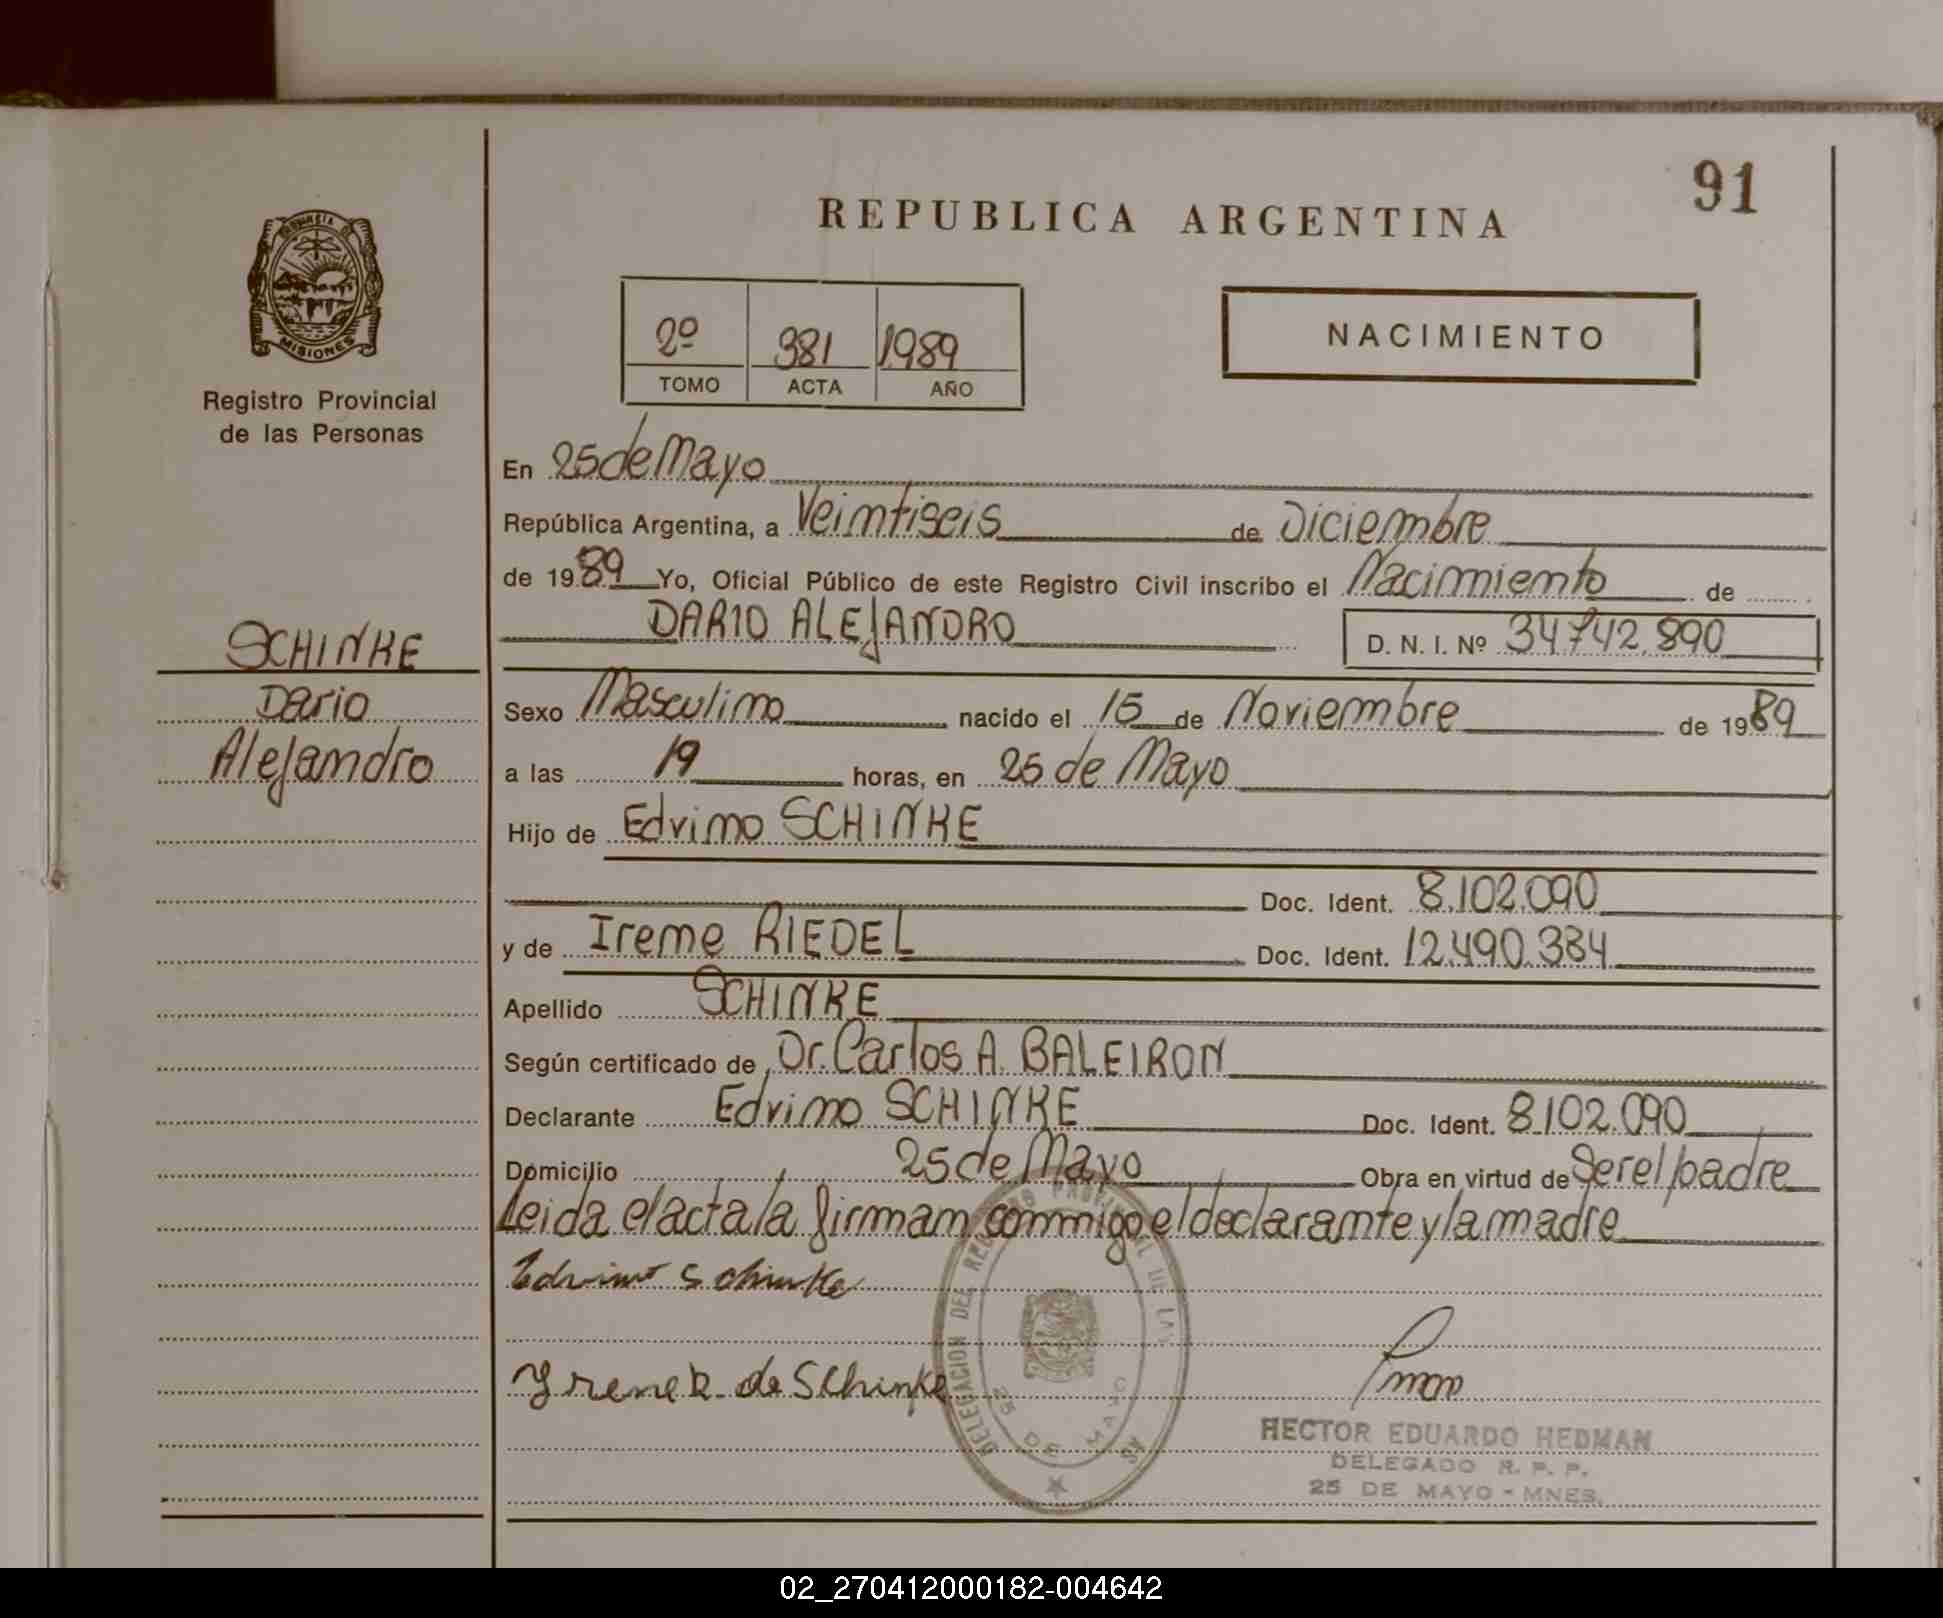 91
REPUBLICA ARGENTINA
MISIONES
Registro Provincial
de las Personas
2º 381 1989
TOMO ACTA AÑO
NACIMIENTO
En 25 de Mayo
República Argentina, a Veintiseis de Diciembre
de 1989 Yo, Oficial Público de este Registro Civil inscribo el Nacimiento de
DARIO ALEJANDRO D. N. I. Nº 34742.890
SCHINKE
Dario
Alejandro
Sexo Masculino nacido el 15 de Noviembre de 1989
a las 19 horas, en 25 de Mayo
Hijo de Edvino SCHINKE
Doc. Ident. 8.102.090
y de Irene RIEDEL Doc. Ident. 12.490.384
Apellido SCHINKE
Según certificado de Dr. Carlos A. BALEIRON
Declarante Edvino SCHINKE Doc. Ident. 8.102.090
Domicilio 25 de Mayo Obra en virtud de Ser el padre
Leida el acta la firman conmigo el declarante y la madre
Edvino Schinke
Yrene R. de Schinke
DELEGACION DEL REGISTRO PROVINCIAL DE LAS
25 DE MAYO
HECTOR EDUARDO HEDMAN
DELEGADO R. P. P.
25 DE MAYO - MNES.
02_270412000182-004642